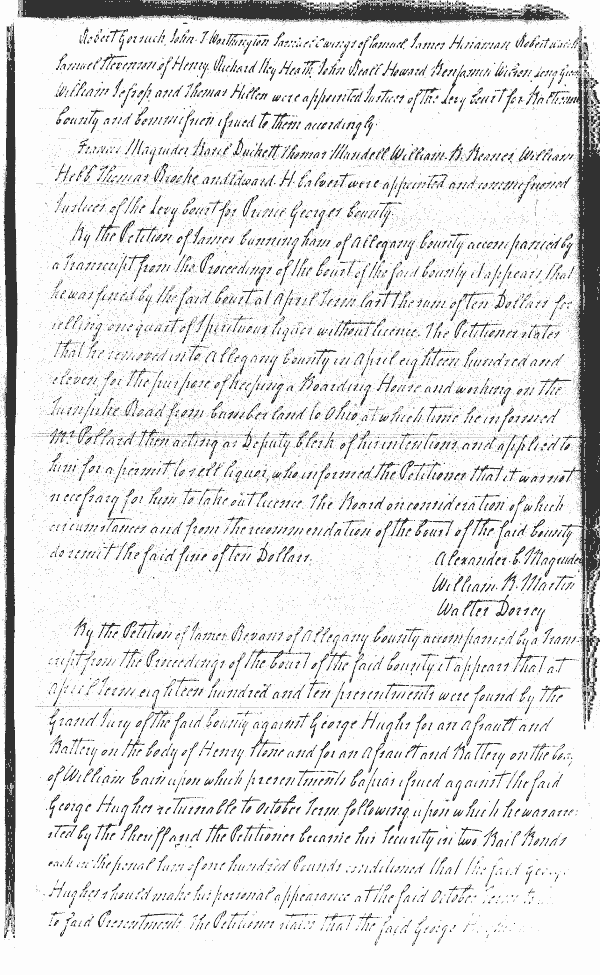 Robert Gorsuch, John T Worthington Samuel Owings of Samuel, James Hindman Robert
Samuel Stevenson of Henry, Richard Key Heath, John Beall Howard Benjamin Wilson
William Jessop and Thomas Hillen were appointed Justices of the Levy Court for Baltimore
County and Commission issued to them accordingly.
Francis Magruder Basil Duckett, Thomas Mundell William B. Beanes, William
Hebb Thomas Brooke, and Edward H. Calvert were appointed and commissioned
Justices of the Levy Court for Prince Georges County
By the Petition of James Cunningham of Allegany County accompanied by
a Transcript from the Proceedings of the Court of the said County it appears that
he was fined by the said Court at April Term last the sum of ten Dollars for
selling one quart of Spirituous liquor without licence. The Petitioner states
that he removed into Allegany County in April eighteen hundred and
eleven for the purpose of keeping a Boarding House and working on the
Turnpike Road from Cumberland to Ohio at which time he informed
Mr. Pollard then acting as Deputy Clerk of his intentions and applied to
him for a permit to sell liquor, who informed the Petitioner that it was not
necessary for him to take out licence. The Board on consideration of which
circumstances and from the recommendation of the Court of the said County
do remit the said fine of ten Dollars.
Alexander C. Magruder
William B. Martin
Walter Dorsey
By the Petition of James Bevans of Allegany County accompanied by a Trans-
cript from the Proceedings of the Court of the said County it appears that at
April Term eighteen hundred and ten presentments were found by the
Grand Jury of the said County against George Hughs for an Assault and
Battery on the body of Henry Stone and for an Assault and Battery on the body
of William Cain upon which presentments Capias issued against the said
George Hughes returnable to October Term following upon which he was arre-
sted by the Sheriff and the Petitioner became his Security in two Bail Bonds
each in the penal Sum of one hundred Pounds conditioned that the said George
Hughes should make his personal appearance at the said October Term
to said Presentments. The Petitioner states that the said George